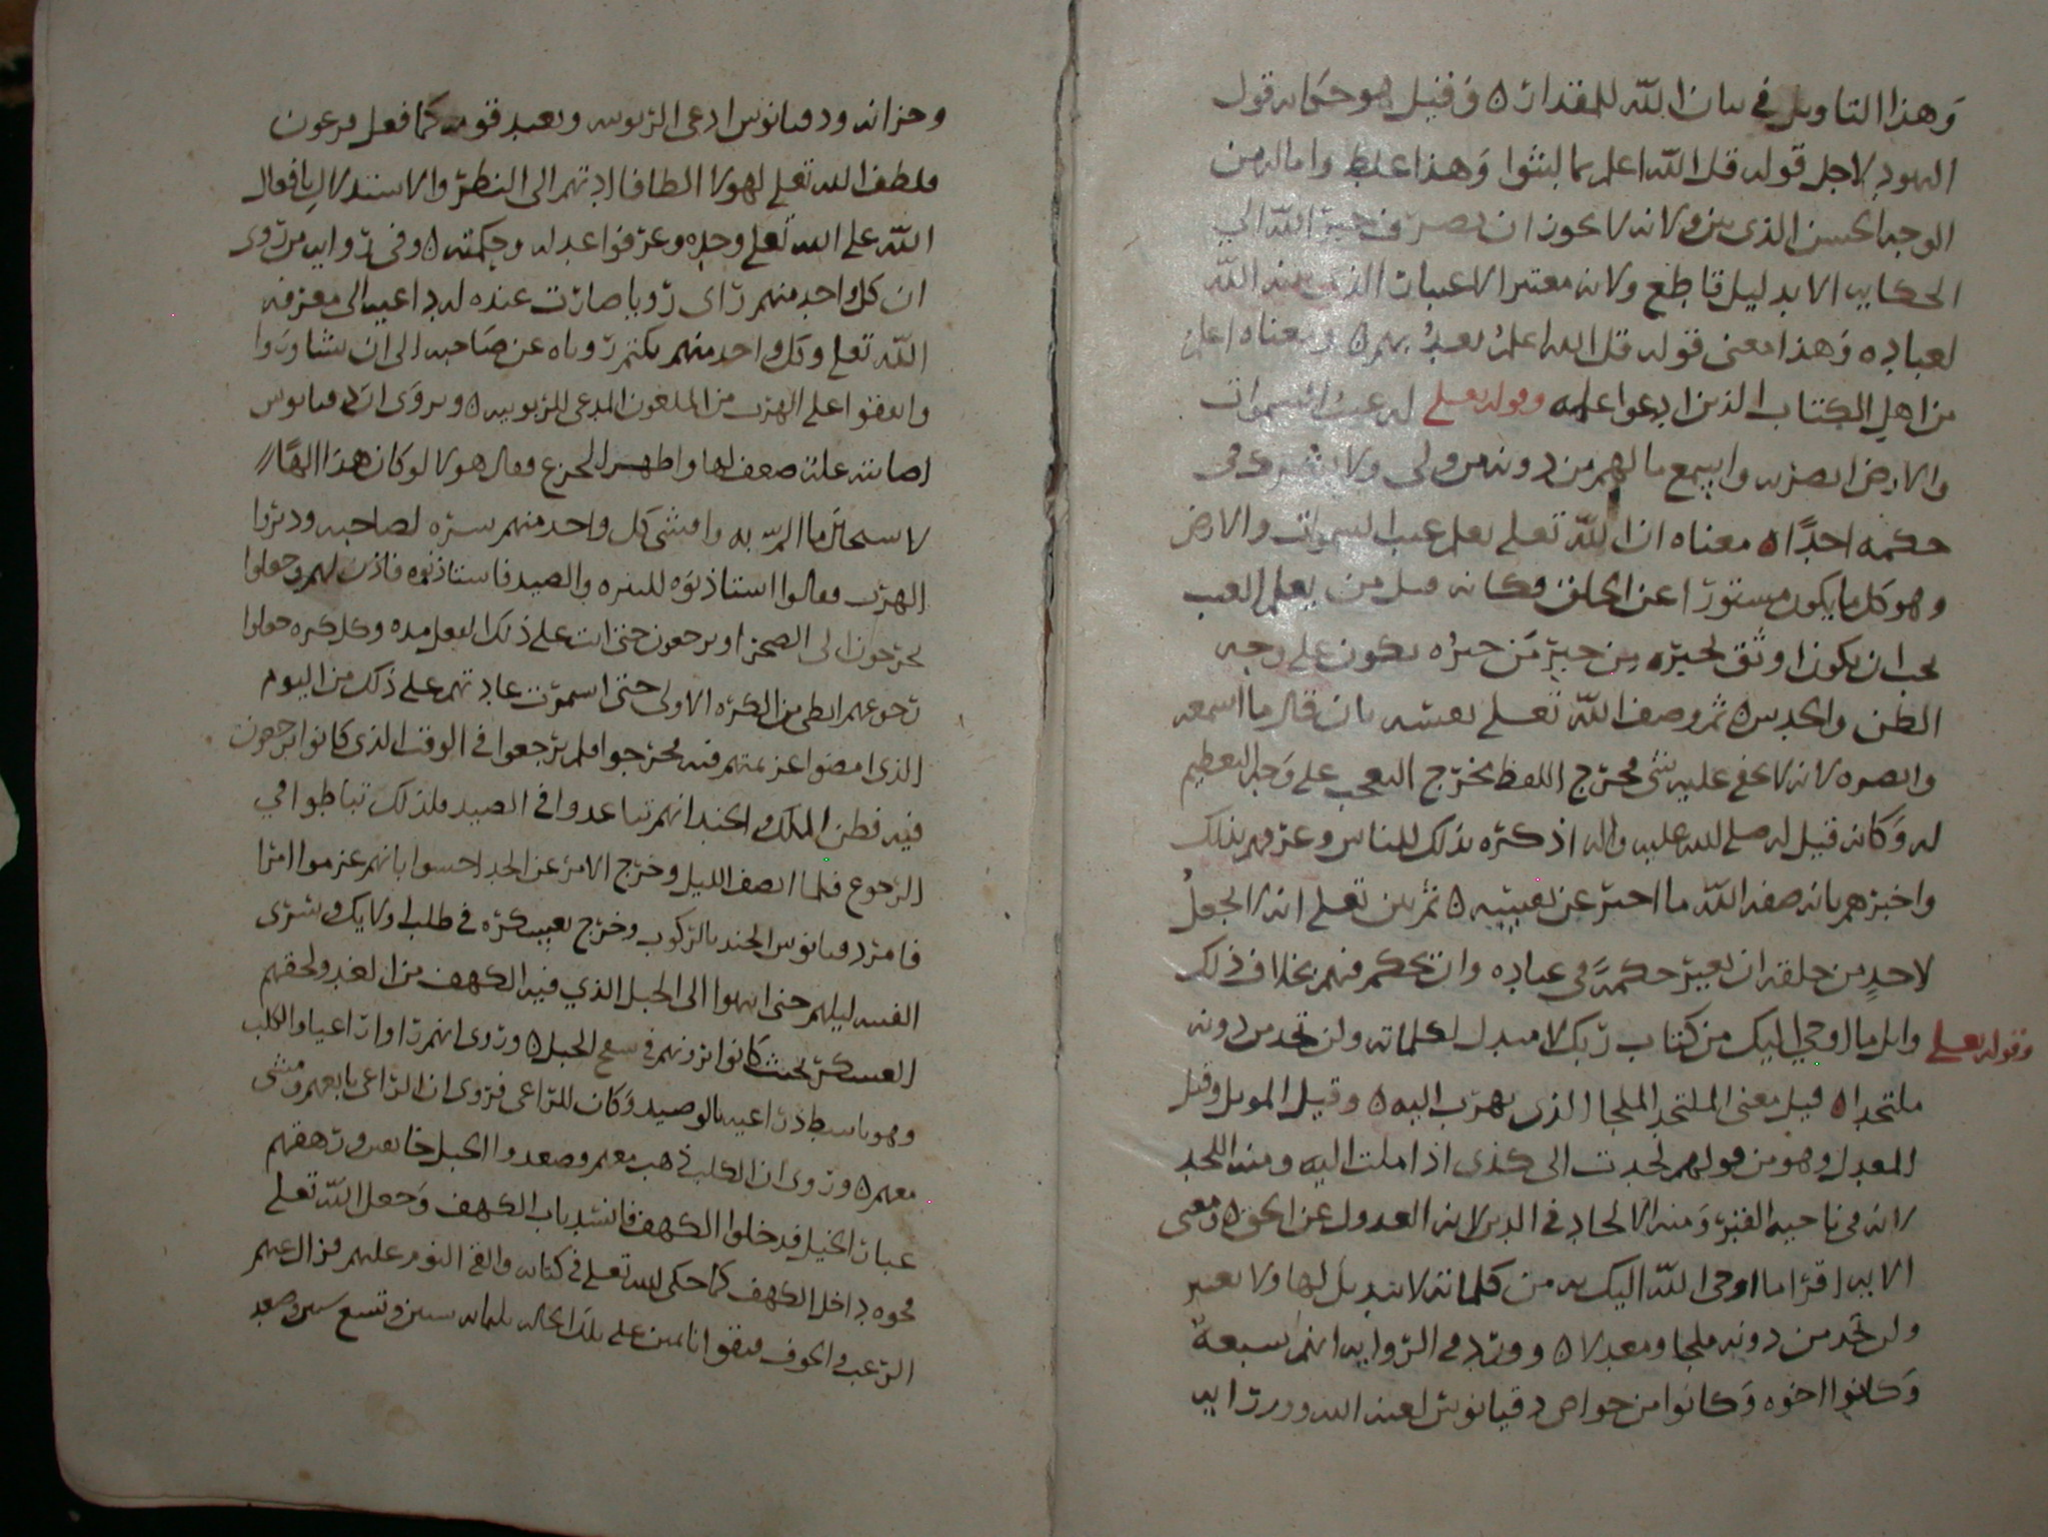 وهذا التاويل في بيان الله للمقدار ه وقيل هو حكايه قول
اليهود لاجل قوله قل الله اعلم بما لبثوا وهذا غلط واماله من
الوجه الحسن الذي بين ولانه لا يجوز ان يصرف خبر الله الي
الحكايه الا بدليل قاطع ولانه معتبر الاعتبار الذي بينه الله
لعباده وهذا معنى قوله قل الله اعلم بعد بهم ه ومعناه اعلم
من اهل الكتاب الذين ادعوا علمه وقوله تعلى له غيب السموات
والارض ابصر به واسمع ما لهم من دونه من ولى ولا يشرك في
حكمه احدا ه معناه ان الله تعلى يعلم غيب السموات والارض
وهو كل ما يكون مستورا عن الخلق فكانه قيل من يعلم الغيب
يجب ان يكون اوثق لخبره من خبر من خبره يكون على وجه
الظن والحدس ه ثم وصف الله تعلى نفسه بان قال ما اسمعه
وابصره لانه لا يخفى عليه شي مخرج اللفظ مخرج التعجب على وجه التعظيم
له وكانه قيل له صلى الله عليه واله اذكره بذلك للناس وعرفهم بذلك
واخبرهم بانه صفه الله ما اخبر عن نفسه ه ثم بين تعلى انه لا يجعل
لاحد من خلقه ان يغير حكمه في عباده وان يحكم فيهم بخلاف ذلك
وقوله تعلى واتل ما اوحي اليك من كتاب ربك لا مبدل لكلماته ولن تجد من دونه
ملتحدا ه قيل معنى الملتحد الملجا الذي يهرب اليه ه وقيل الموئل وقيل
المعدل وهو من قولهم لحدت الى كذى اذا ملت اليه ومنه اللحد
لانه في ناحيه القبر ومنه الالحاد في الدين لانه العدول عن الحق ه ومعنى
الايه اقرا ما اوحى الله اليك به من كلماته لا تبديل لها ولا تغيير
ولن تجد من دونه ملجا ومعدلا ه وورد في الروايه انهم سبعه
وكانوا اخوه وكانوا من خواص دقيانوس لعنه الله ووزرايه
وخزانه ودقيانوس ادعى الربوبيه وتعبد قومه كما فعل فرعون
فلطف الله تعلى لهولا الطافا ادتهم الى النظر والاستدلال بافعال
الله على الله تعلى وحده وعرفوا عدله وحكمته ه وفى روايه من روى
ان كل واحد منهم راى رويا صارت عنده له داعيه الى معرفه
الله تعلى وكل واحد منهم يكتم روياه عن صاحبه الى ان تشاوروا
واتفقوا على الهرب من الملعون المدعى للربوبيه ه ويروى ان دقيانوس
اصابته عله ضعف لها واظهر الجزع فقال هولا لو كان هذا الها
لاستحال ما الم به وافشى كل واحد منهم سره لصاحبه ودبروا
الهرب فقالوا استاذنوه للنزه والصيد فاستاذنوه فاذن لهم وجعلوا
يخرجون الى الصحرا ويرجعون حتى اتت على ذلك الفعل مده وكل كره جعلوا
رجوعهم ابطى من الكره الاولى حتى استمرت عادتهم على ذلك من اليوم
الذى امضوا عزيمتهم فيه فخرجوا فلم يرجعوا في الوقت الذى كانوا يرجعون
فيه فظن الملك والجند انهم تباعدوا في الصيد فلذلك تباطوا في
الرجوع فلما انصف الليل وخرج الامر عن الحد احسوا بانهم عزموا امرا
فامر دقيانوس الجند بالركوب وخرج بعسكره في طلب اوليك وسرى
الفتيه ليلهم حتى انتهوا الى الجبل الذي فيه الكهف من الغد ولحقهم
العسكر بحيث كانوا يرونهم في سفح الجبل ه وروى انهم راوا راعيا والكلب
وهو باسط ذراعيه بالوصيد وكان للراعى فروى ان الراعى تابعهم ومشى
معهم ه وروى ان الكلب ذهب معهم وصعدوا الجبل خايفين ورهقهم
غبار الخيل فدخلوا الكهف فانسد باب الكهف وجعل الله تعلى
فجوه داخل الكهف كما حكى الله تعلى في كتابه والقى النوم عليهم فزال عنهم
الرعب والخوف فبقوا نايمين على تلك الحاله ثلمايه سنين وتسع سنين وصعد